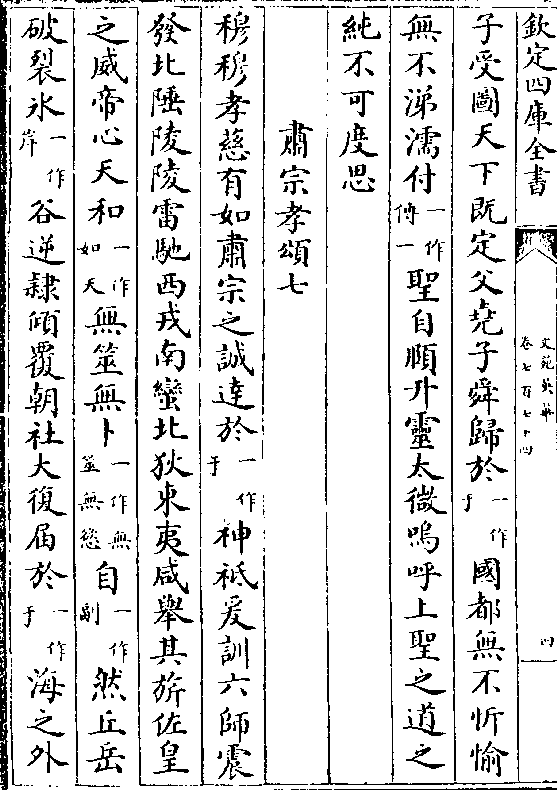 欽定四庫全書
文苑英華
卷七百七十四
四
子受圖天下既定父堯子舜歸於一作于國都無不忻愉
無不涕濡付一作傳一聖自順升靈太微嗚呼上聖之道之
純不可度思
肅宗孝頌七
穆穆孝慈有如肅宗之誠達於一作于神祇爰訓六師震
發北陲陵陵雷馳西戎南蠻北狄東夷咸舉其旂佐皇
之威帝心天和一作如天無筮無卜一作無筮無慾自一作副然丘岳
破裂氷一作岸谷逆隷傾覆朝社大復届於一作于海之外